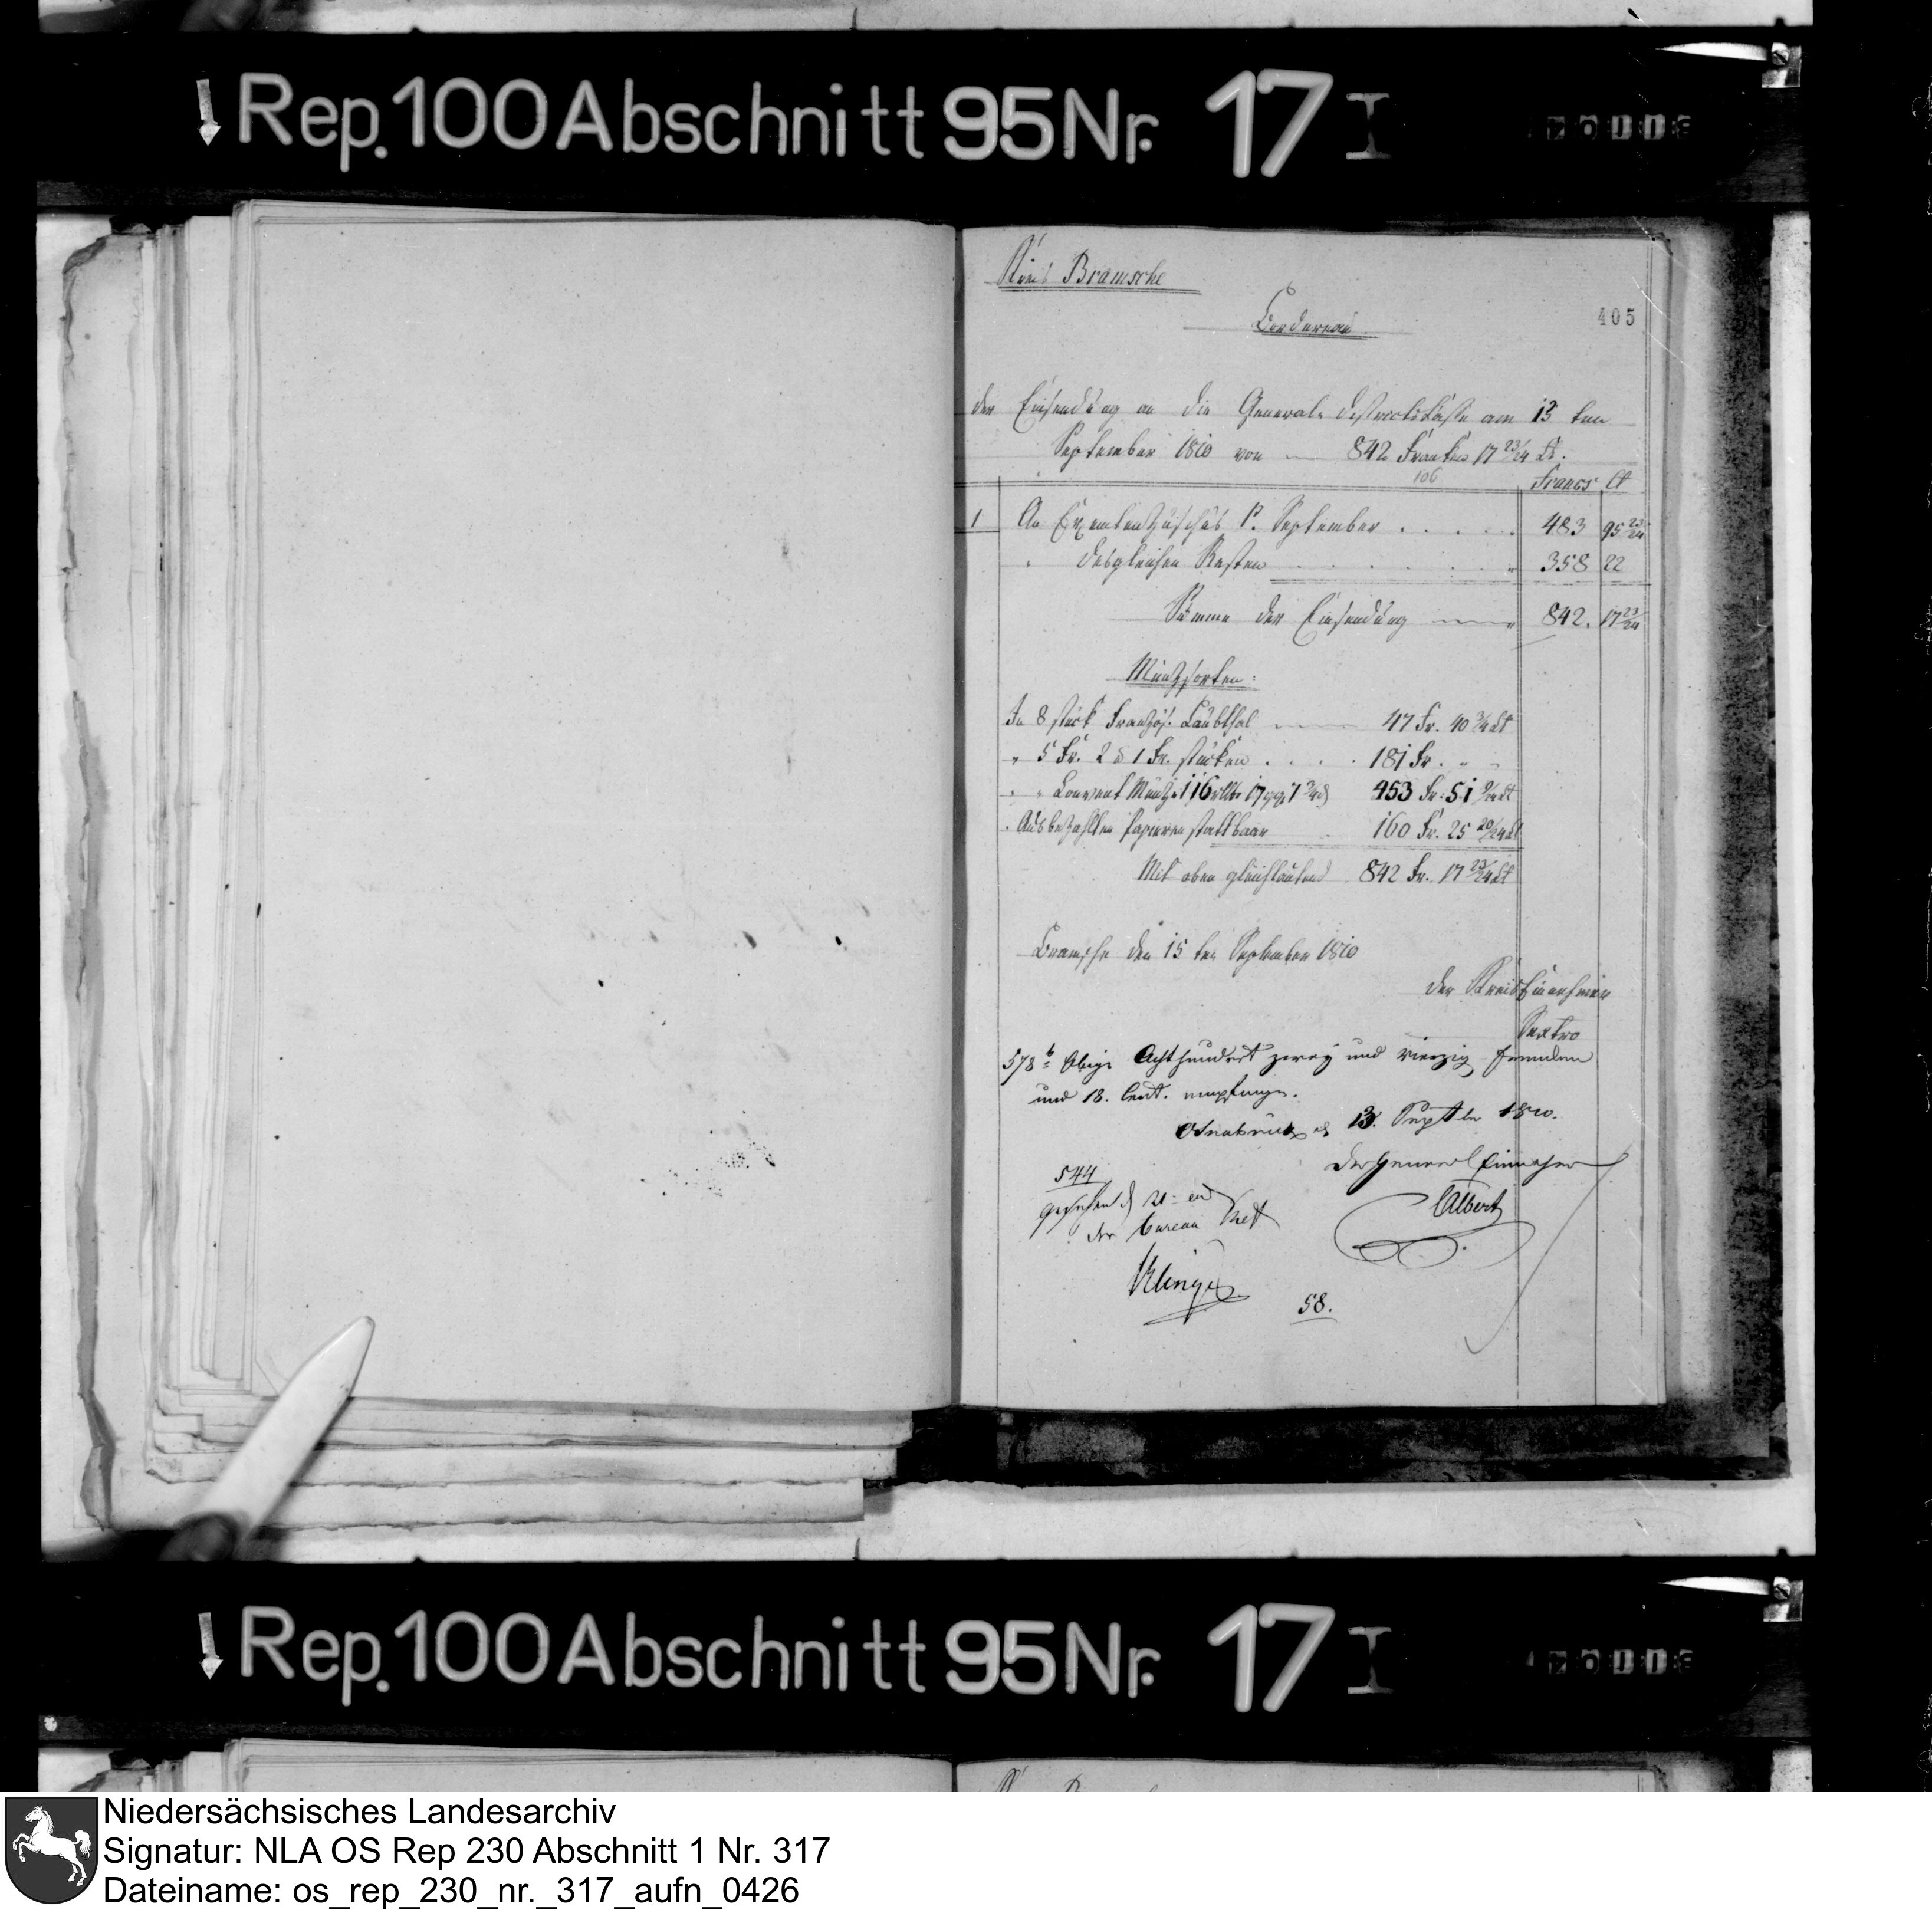 Rep. 100 Abschnitt 95 Nr. 17 I
Kreis Bramsche
405
Bordereau
der Einsendung an die General-Districtskasse am 13 ten
September 1810 von 842 Franken 17 23/24 Ct.
106
Francs Ct
1 An Exemtenzuschus p. September 483 95 23/24
" desgleichen Resten 358 22
Summe der Einsendung 842. 17 23/24
Muntzsorten:
In 8 stück Französ. Laubthal 47 Fr. 40 3/4 Ct
" 5 Fr. 2 & 1 Fr. stücken 181 Fr. " -
" " Convent Müntze 116 rthlr 17 ggr 7 3/4 d 453 Fr. 51 Ct
" Ausbezahlten papieren statt baar 160 Fr. 25 20/24 Ct
Mit oben gleichlautend 842 Fr. 17 23/24 Ct
Bramsche den 15 ten September 1810
der Kreis Einnehmer
Sextro
578 Obige Achthundert zwey und vierzig Franken
und 18. Cent. empfangen.
Osnabrück 13. Septbr 1810.
Der General Einnehmer
Albert
544
gesehen d 21
der Bureau Chef
Klinge
58.
Rep. 100 Abschnitt 95 Nr. 17 I
Niedersächsisches Landesarchiv
Signatur: NLA OS Rep 230 Abschnitt 1 Nr. 317
Dateiname: os_rep_230_nr._317_aufn_0426